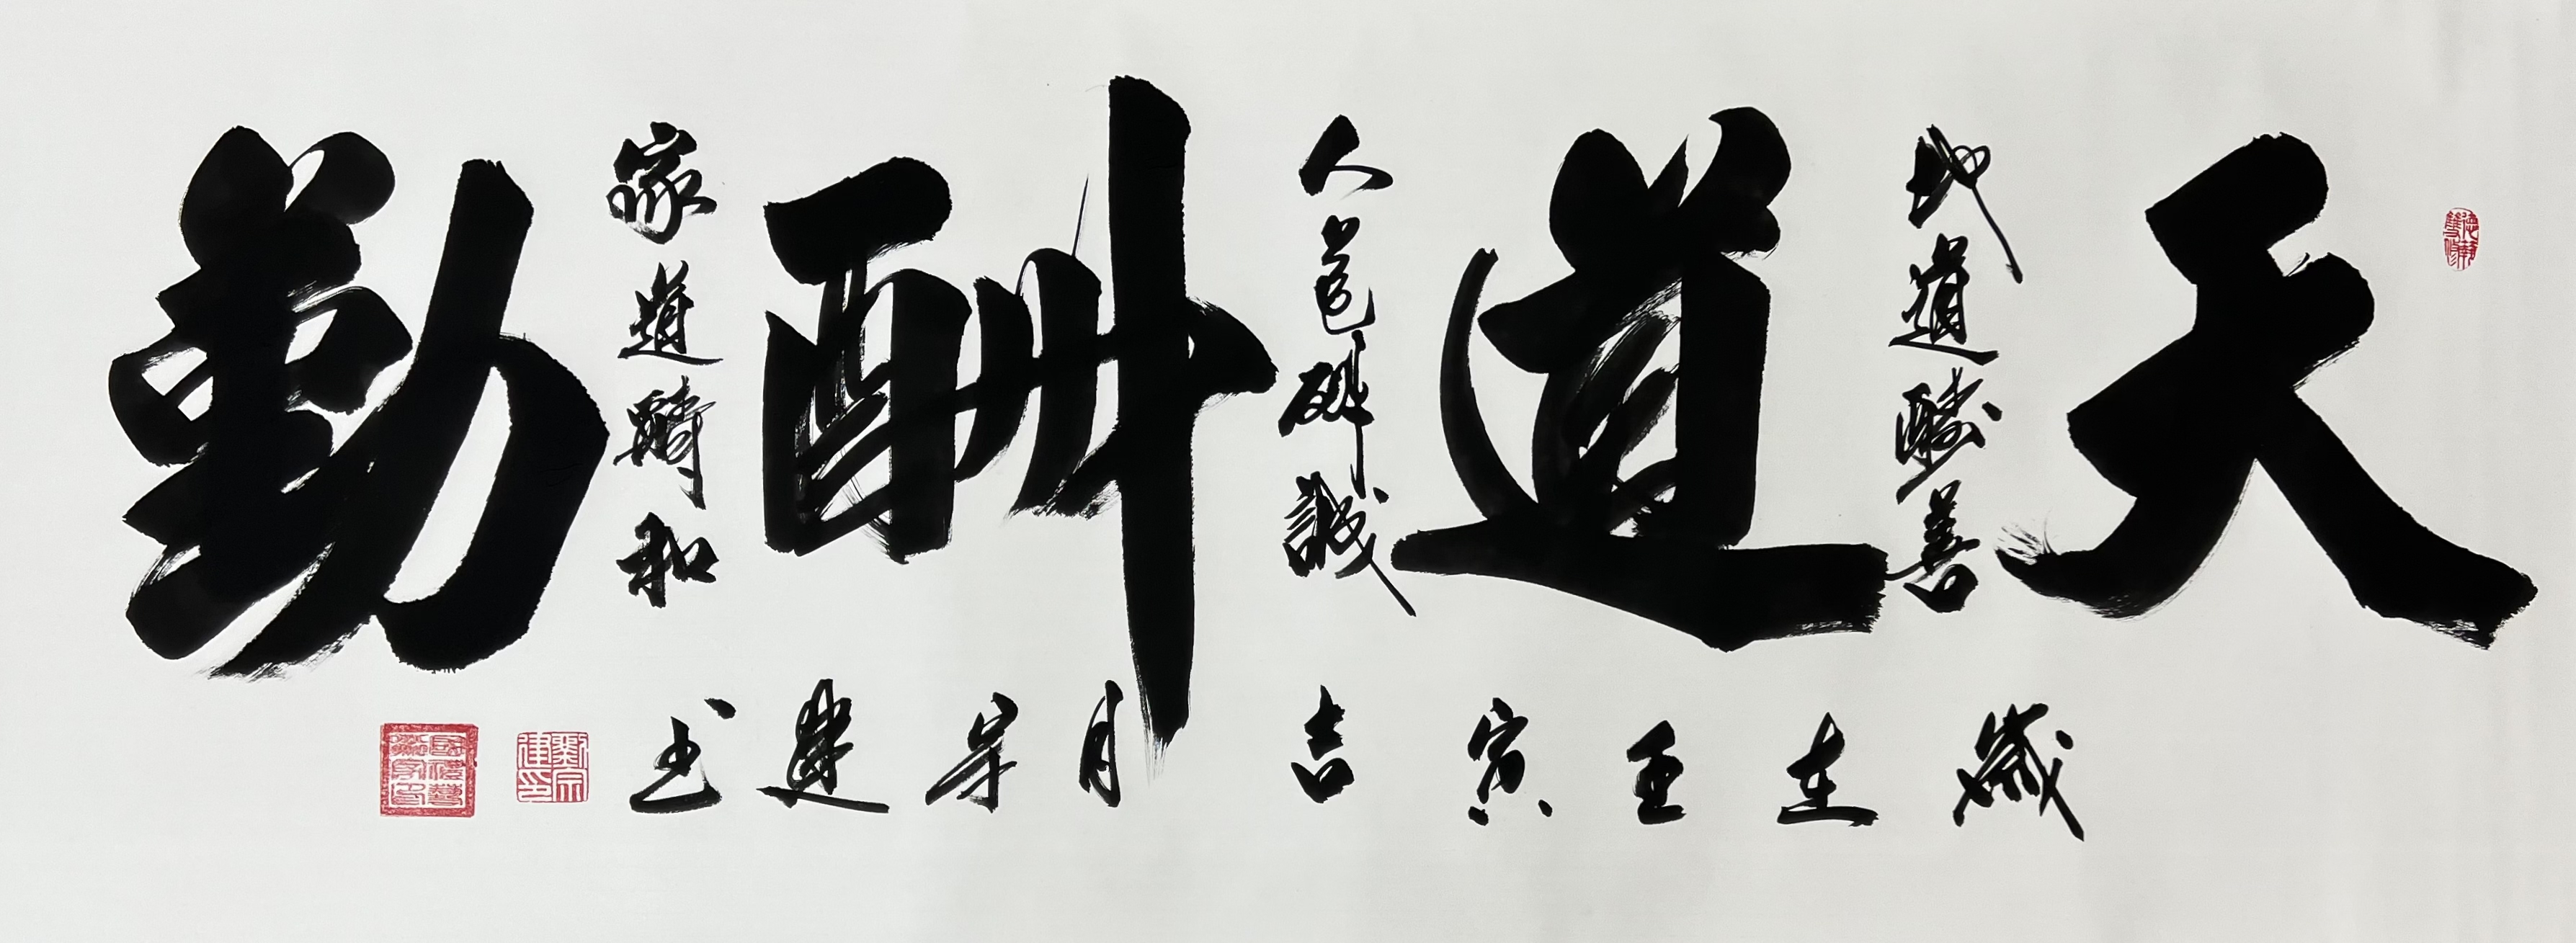 天道酬勤
地道酬善
人道酬誠
家道酬和
歲在壬寅吉月宗建書
劉宗建印